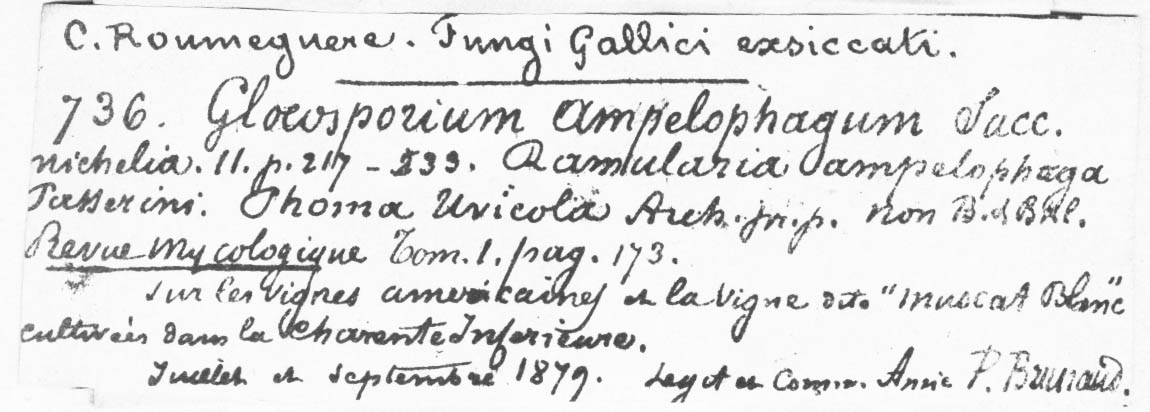 C. Roumeguere. Fungi Gallici exsiccati.
736. Gloeosporium ampelophagum Sacc.
michelia. II. p. 217 - 533. Ramularia ampelophaga
Passerini. Phoma Uvicola Arch. in. p. non B. & Bkl.
Revue Mycologique Tom. 1. pag. 173.
Sur les vignes americaines et la vigne dite "Muscat Blanc"
cultivées dans la Charente Inferieure.
Juillet et septembre 1879. Legit et Comm. Amic P. Brunaud.